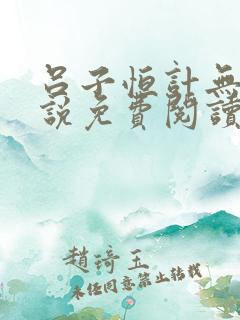 呂子恒計無
說免費閱讀
趙琦玉
未經同意禁止轉載